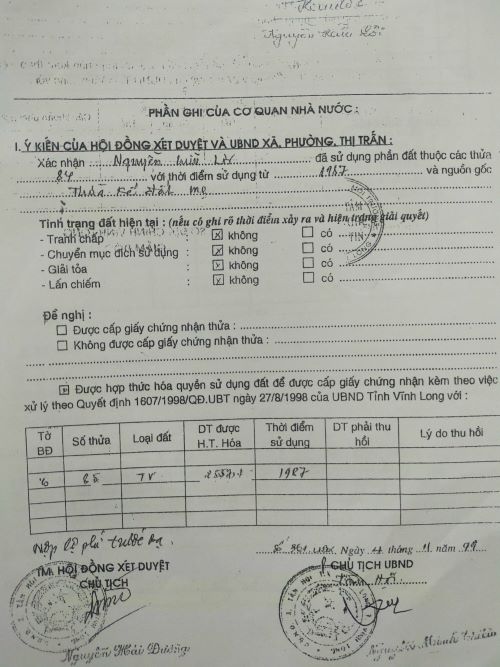 Nguyễn Hữu
PHẦN GHI CỦA CƠ QUAN NHÀ NƯỚC :
I. Ý KIẾN CỦA HỘI ĐỒNG XÉT DUYỆT VÀ UBND XÃ, PHƯỜNG, THỊ TRẤN :
Xác nhận Nguyễn đã sử dụng phần đất thuộc các thửa
84 với thời điểm sử dụng từ 1987 và nguồn gốc
Tình trạng đất hiện tại : (nếu có ghi rõ thời điểm xảy ra và hiện trạng giải quyết)
- Tranh chấp : ☒ không ☐ có
- Chuyển mục đích sử dụng : ☒ không ☐ có
- Giải tỏa : ☒ không ☐ có
- Lấn chiếm : ☒ không ☐ có
Đề nghị :
☐ Được cấp giấy chứng nhận thửa :
☐ Không được cấp giấy chứng nhận thửa :
☒ Được hợp thức hóa quyền sử dụng đất để được cấp giấy chứng nhận kèm theo việc
xử lý theo Quyết định 1607/1998/QĐ.UBT ngày 27/8/1998 của UBND Tỉnh Vĩnh Long với :
Tờ BĐ Số thửa Loại đất DT được H.T. Hóa Thời điểm sử dụng DT phải thu hồi Lý do thu hồi
6 85 TV 1987
Nộp lệ phí trước bạ.
Ngày tháng 11 năm 99
TM. HỘI ĐỒNG XÉT DUYỆT
CHỦ TỊCH
CHỦ TỊCH UBND
Nguyễn Hải Dương
Nguyễn Minh